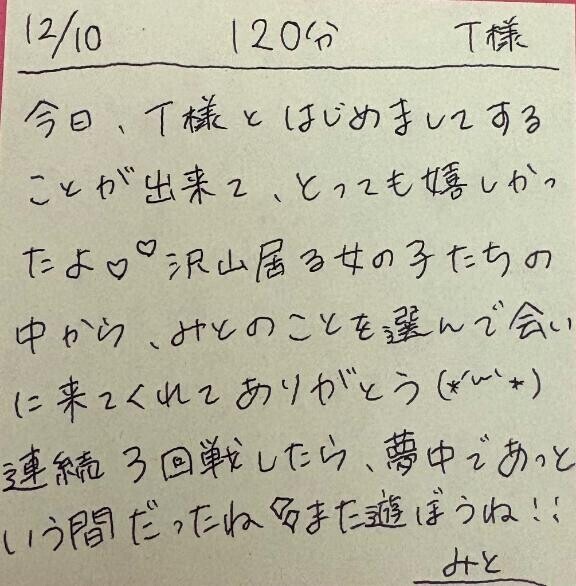 12/10 120分 T様
今日、T様とはじめましてする
ことが出来て、とっても嬉しかっ
たよ♡♡沢山居る女の子たちの
中から、みとのことを選んで会い
に来てくれてありがとう(*´ω`*)
連続3回戦したら、夢中であっと
いう間だったねまた遊ぼうね!!
みと